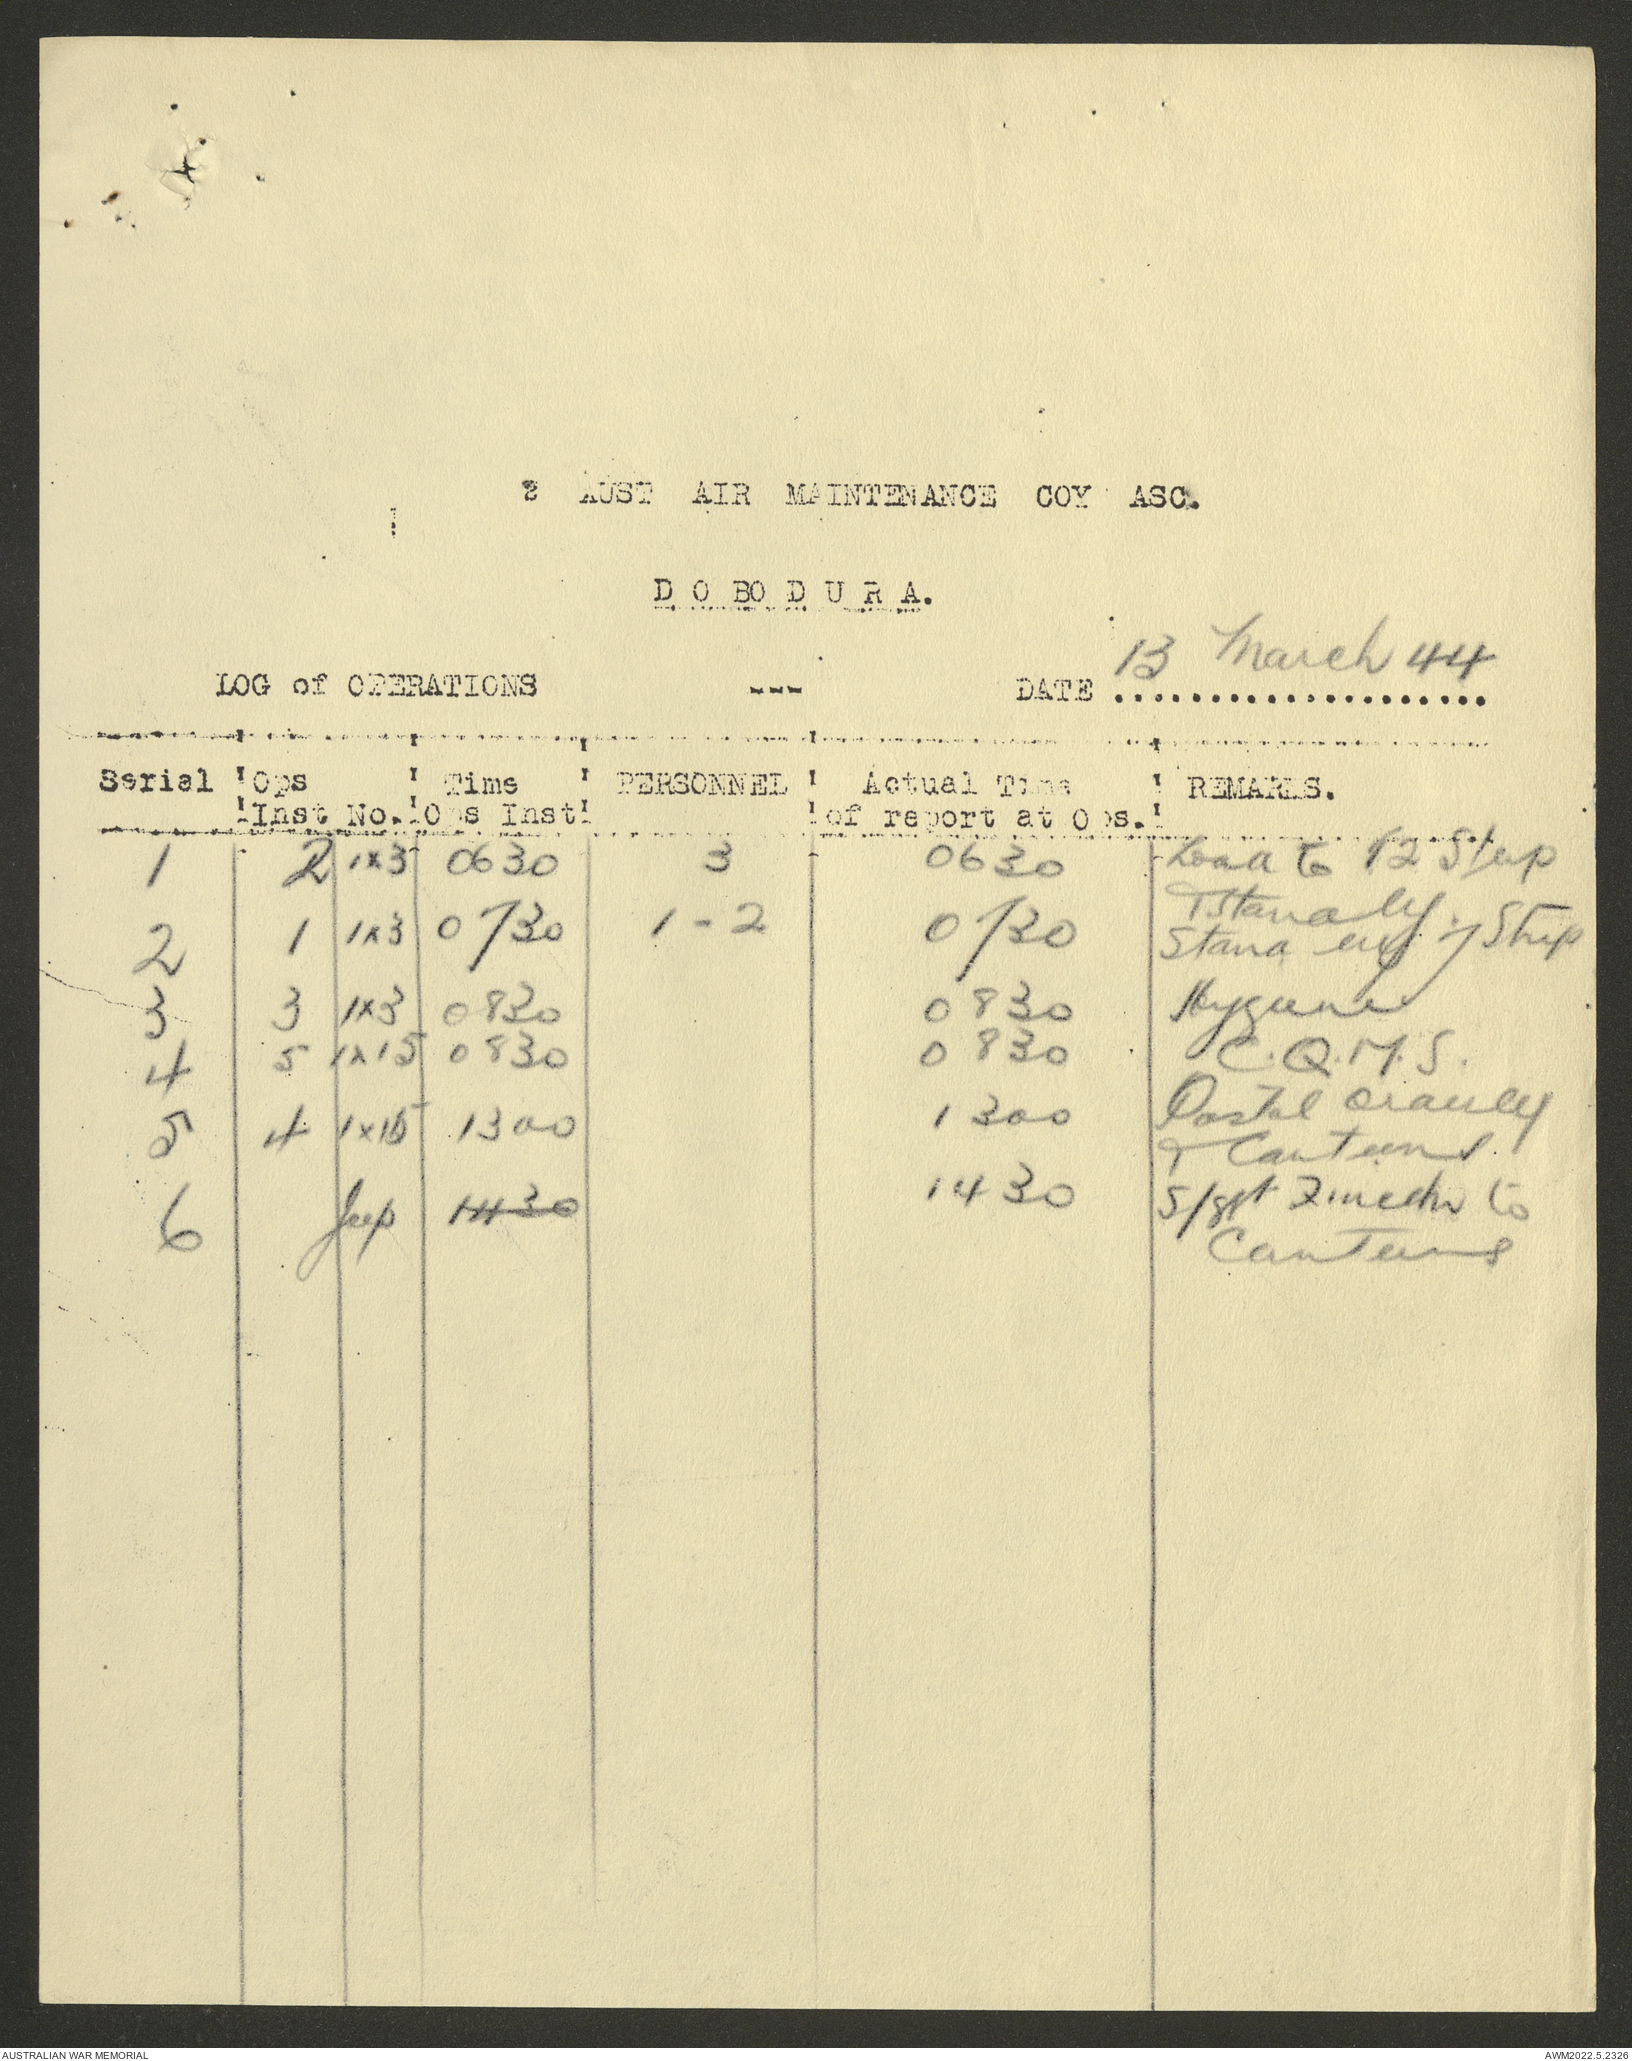 2 AUST AIR MAINTENANCE COY ASC.
D O BO D U R A.
LOG of OPERATIONS --- DATE 13 March 44
Serial Ops Time PERSONNEL Actual Time REMARKS.
Inst No. Ops Inst of report at Ops.
1 2 1x3 0630 3 0630 Load to 12 Strip
& Standby.
2 1 1x3 0730 1-2 0730 Stand by 7 Strip
3 3 1x3 0830 0830 Hygiene
4 5 1x15 0830 0830 C.Q.M.S.
5 4 1x15 1300 1300 Postal Orderly
& Canteens.
6 Jeep 1430 1430 S/Sgt to
Canteens
AUSTRALIAN WAR MEMORIAL AWM2022.5.2326